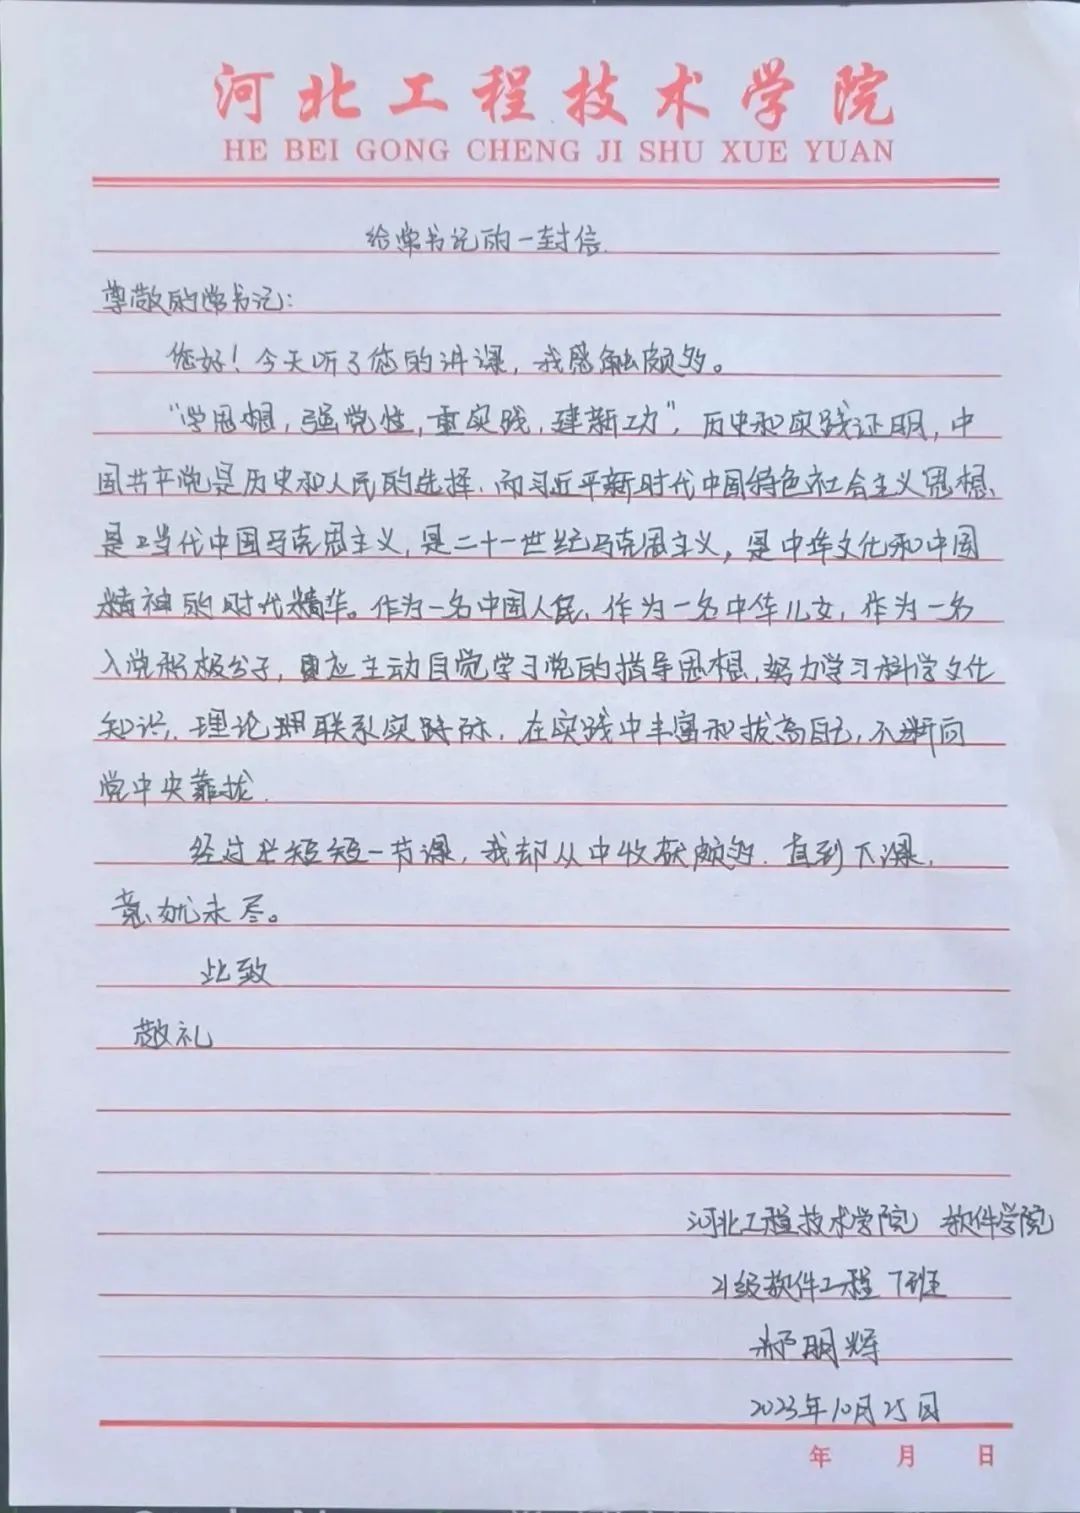 河北工程技术学院
HE BEI GONG CHENG JI SHU XUE YUAN
给常书记的一封信.
尊敬的常书记:
您好!今天听了您的讲课,我感触颇多。
“学思想,强党性,重实践,建新功”,历史和实践证明,中
国共产党是历史和人民的选择.而习近平新时代中国特色社会主义思想、
是当代中国马克思主义,是二十一世纪马克思主义,是中华文化和中国
精神的时代精华。作为一名中国人民、作为一名中华儿女,作为一名
入党积极分子,更应主动自觉学习党的指导思想,努力学习科学文化
知识,理论联系实际,在实践中丰富和拔高自己,不断向
党中央靠拢.
经过短短一节课,我却从中收获颇多.直到下课,
意犹未尽。
此致
敬礼
河北工程技术学院 软件学院
21级软件工程7班
明辉
2023年10月25日
年 月 日